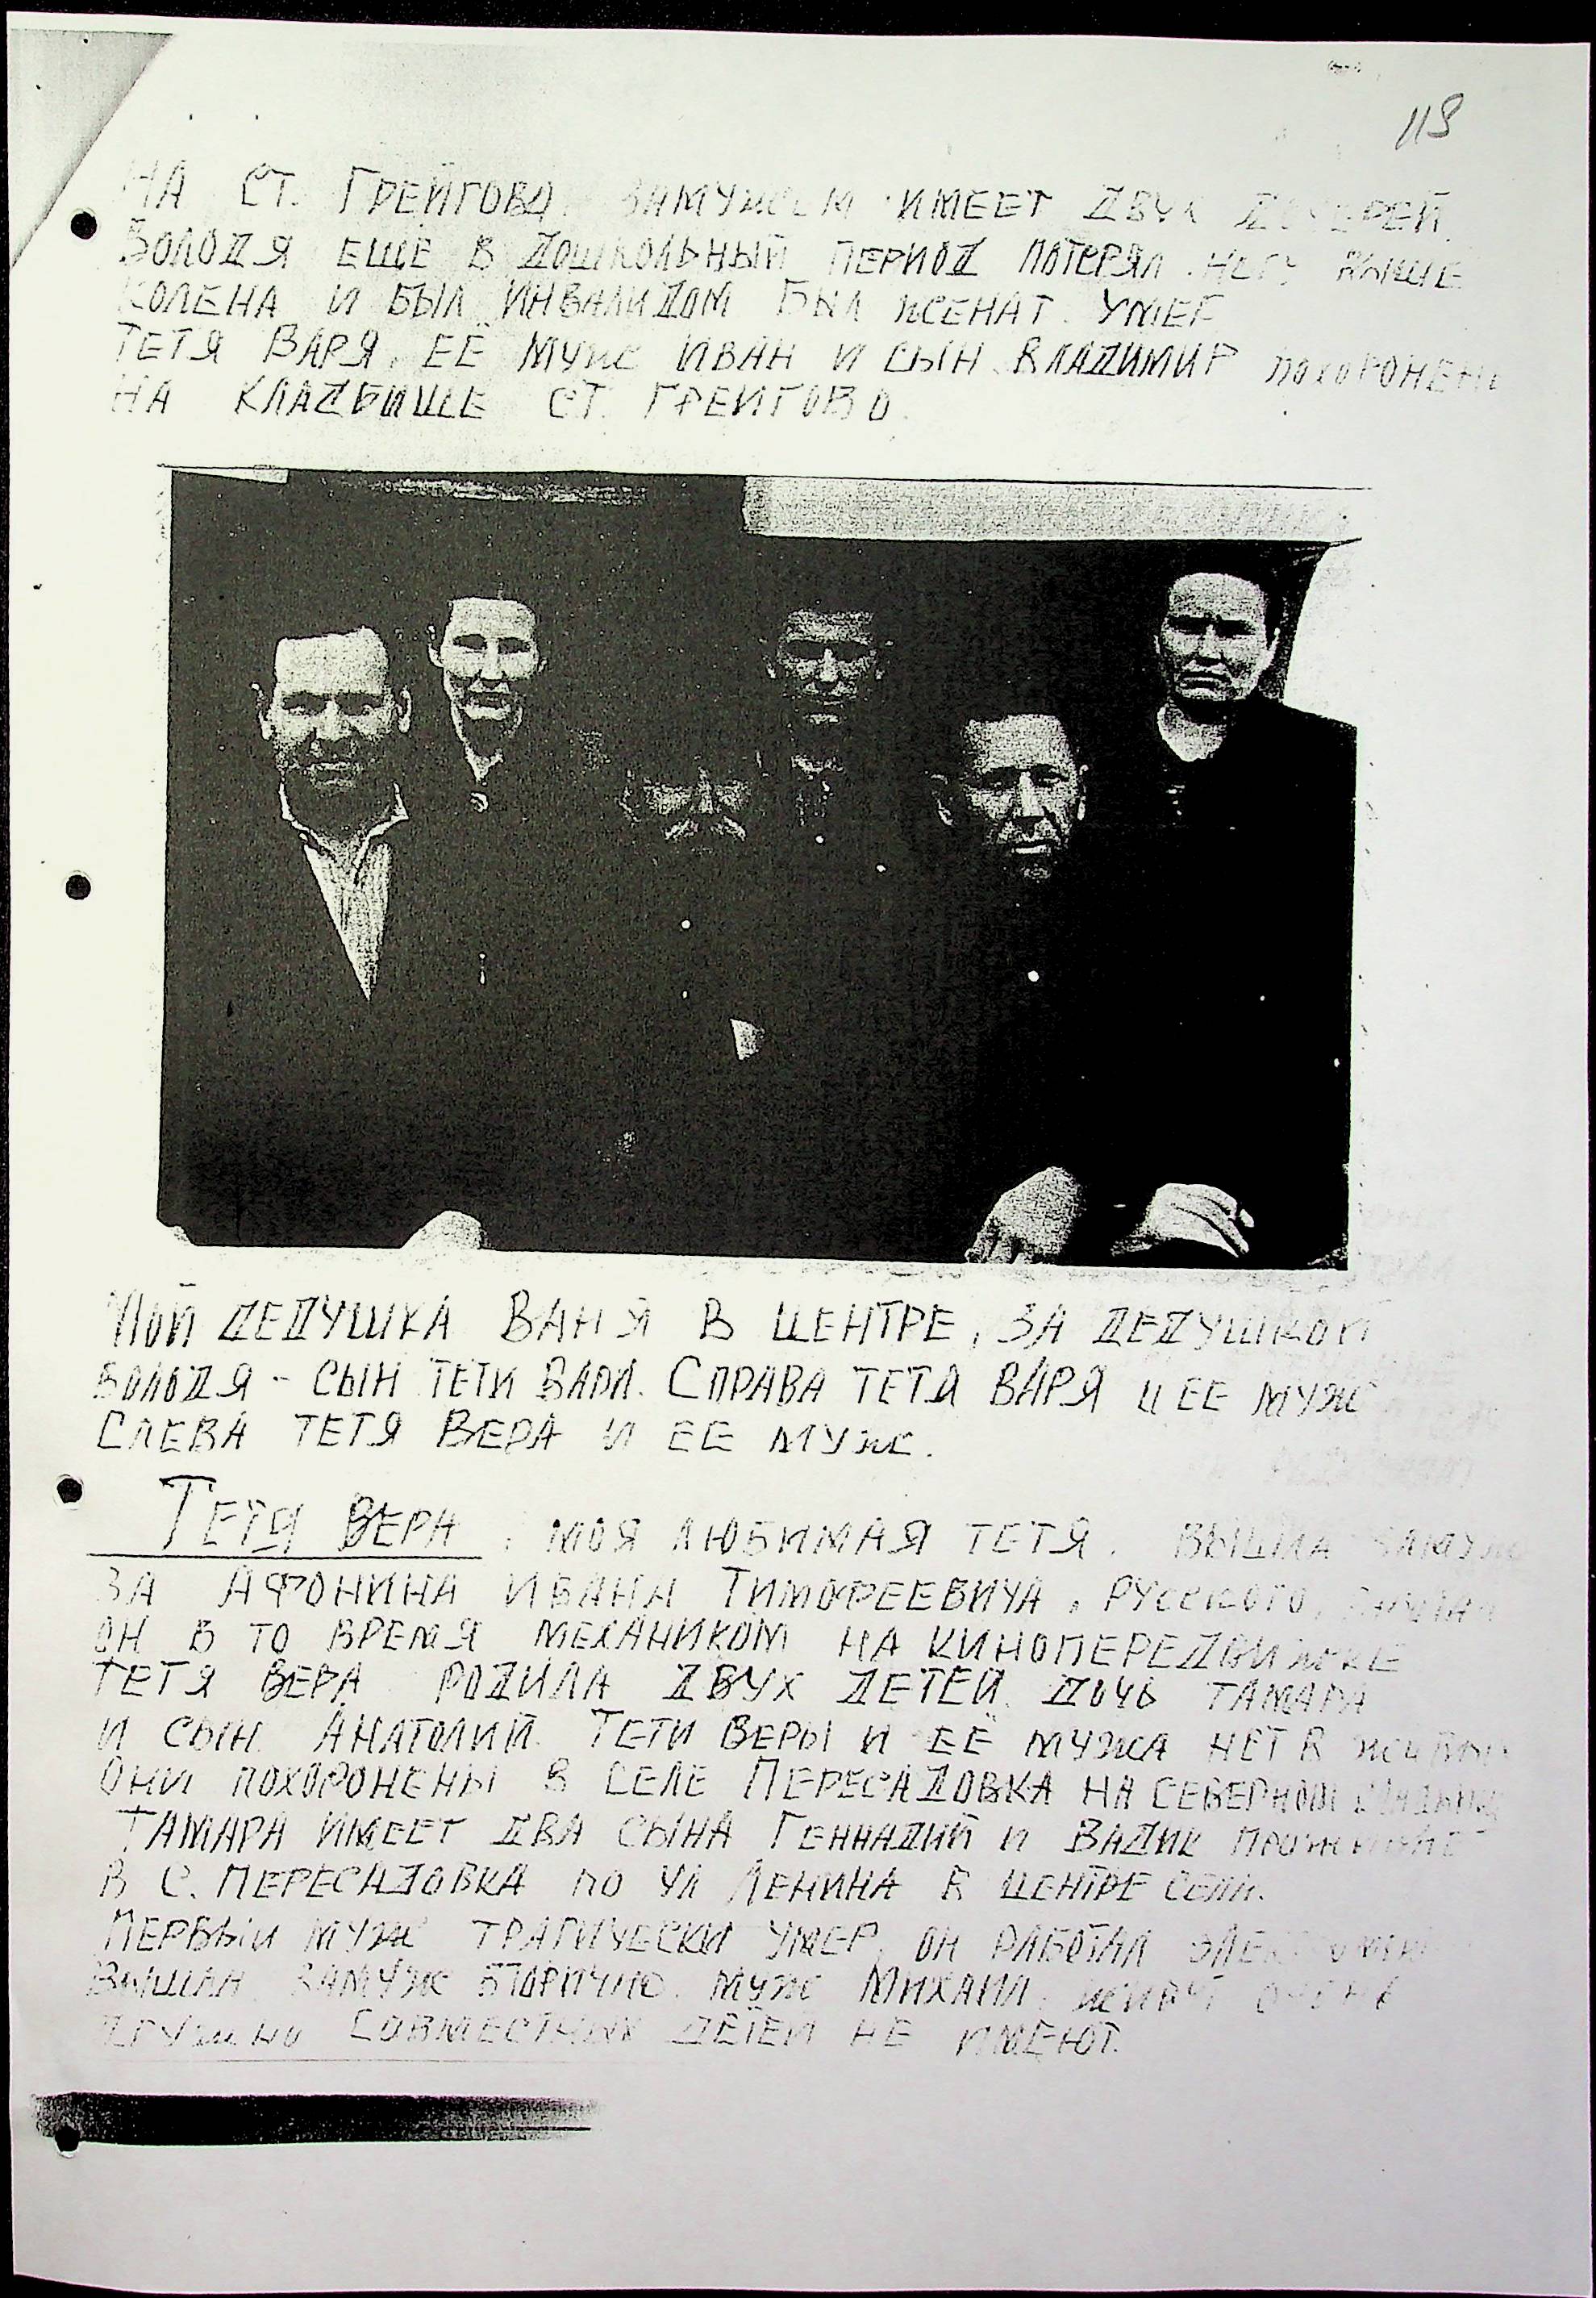 118
НА СТ. ГРЕЙГОВО. ЗАМУЖЕМ ИМЕЕТ ДВУХ ДОЧЕРЕЙ.
ВОЛОДЯ ЕЩЕ В ДОШКОЛЬНЫЙ ПЕРИОД ПОТЕРЯЛ НОГУ ВЫШЕ
КОЛЕНА И БЫЛ ИНВАЛИДОМ БЫЛ ЖЕНАТ. УМЕР
ТЕТЯ ВАРЯ, ЕЁ МУЖ ИВАН И СЫН ВЛАДИМИР ПОХОРОНЕНЫ
НА КЛАДБИЩЕ СТ. ГРЕЙГОВО.
МОЙ ДЕДУШКА ВАНЯ В ЦЕНТРЕ, ЗА ДЕДУШКОЙ
ВОЛОДЯ - СЫН ТЕТИ ВАРИ. СПРАВА ТЕТЯ ВАРЯ И ЕЕ МУЖ
СЛЕВА ТЕТЯ ВЕРА И ЕЕ МУЖ.
ТЕТЯ ВЕРА, МОЯ ЛЮБИМАЯ ТЕТЯ. ВЫШЛА ЗАМУЖ
ЗА АФОНИНА ИВАНА ТИМОФЕЕВИЧА, РУССКОГО,
ОН В ТО ВРЕМЯ МЕХАНИКОМ НА КИНОПЕРЕДВИЖКЕ
ТЕТЯ ВЕРА РОДИЛА ДВУХ ДЕТЕЙ. ДОЧЬ ТАМАРА
И СЫН АНАТОЛИЙ. ТЕТИ ВЕРЫ И ЕЁ МУЖА НЕТ В ЖИВЫХ
ОНИ ПОХОРОНЕНЫ В СЕЛЕ ПЕРЕСАДОВКА НА СЕВЕРНОМ
ТАМАРА ИМЕЕТ ДВА СЫНА ГЕННАДИЙ И ВАДИК ПРОЖИВАЕТ
В С. ПЕРЕСАДОВКА ПО УЛ ЛЕНИНА В ЦЕНТРЕ СЕЛА.
ПЕРВЫЙ МУЖ ТРАГИЧЕСКИ УМЕР, ОН РАБОТАЛ
ВЫШЛА ЗАМУЖ ВТОРИЧНО. МУЖ МИХАИЛ, ЖИВУТ ОЧЕНЬ
ДРУЖНО СОВМЕСТНЫХ ДЕТЕЙ НЕ ИМЕЮТ.